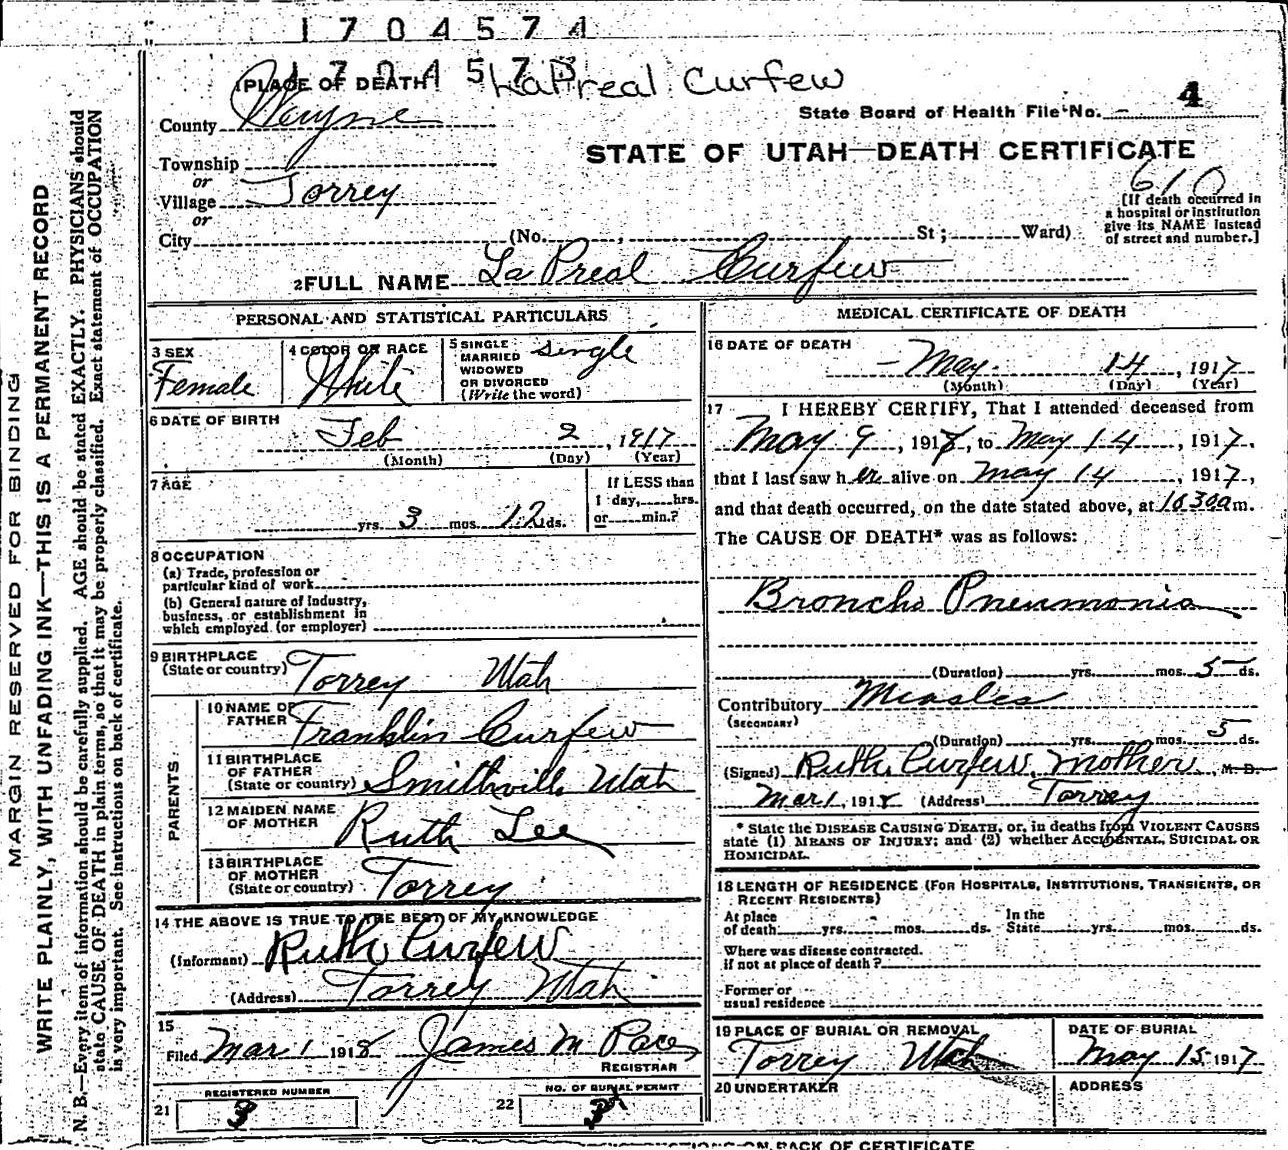 1704574
1704573 LaPreal Curfew
1 PLACE OF DEATH
State Board of Health File No. 4
County Wayne
STATE OF UTAH—DEATH CERTIFICATE
Township
or
Village Torrey
or
City (No. , St ; Ward)
610
[If death occurred in
a hospital or institution
give its NAME instead
of street and number.]
2 FULL NAME La Preal Curfew
PERSONAL AND STATISTICAL PARTICULARS
3 SEX
Female
4 COLOR OR RACE
White
5 SINGLE
MARRIED
WIDOWED
OR DIVORCED
(Write the word)
single
6 DATE OF BIRTH
Feb 2, 1917
(Month) (Day) (Year)
7 AGE
yrs. 3 mos. 12 ds.
If LESS than
1 day, hrs.
or min.?
8 OCCUPATION
(a) Trade, profession or
particular kind of work
(b) General nature of industry,
business, or establishment in
which employed (or employer)
9 BIRTHPLACE
(State or country) Torrey Utah
PARENTS
10 NAME OF
FATHER Franklin Curfew
11 BIRTHPLACE
OF FATHER
(State or country) Smithville Utah
12 MAIDEN NAME
OF MOTHER Ruth Lee
13 BIRTHPLACE
OF MOTHER
(State or country) Torrey
14 THE ABOVE IS TRUE TO THE BEST OF MY KNOWLEDGE
(Informant) Ruth Curfew
(Address) Torrey Utah
15
Filed Mar 1 1918 James M Pace
REGISTRAR
REGISTERED NUMBER
21 3
NO. OF BURIAL PERMIT
22 3
MEDICAL CERTIFICATE OF DEATH
16 DATE OF DEATH
May 14, 1917
(Month) (Day) (Year)
17 I HEREBY CERTIFY, That I attended deceased from
May 9, 1917, to May 14, 1917,
that I last saw her alive on May 14, 1917,
and that death occurred, on the date stated above, at 10 30 a m.
The CAUSE OF DEATH* was as follows:
Broncho Pneumonia
(Duration) yrs. mos. 5 ds.
Contributory Measles
(SECONDARY)
(Duration) yrs. mos. 5 ds.
(Signed) Ruth Curfew, Mother, M. D.
Mar 1, 1918 (Address) Torrey
* State the DISEASE CAUSING DEATH, or, in deaths from VIOLENT CAUSES
state (1) MEANS OF INJURY; and (2) whether ACCIDENTAL, SUICIDAL OR
HOMICIDAL.
18 LENGTH OF RESIDENCE (FOR HOSPITALS, INSTITUTIONS, TRANSIENTS, OR
RECENT RESIDENTS)
At place
of death yrs. mos. ds. In the
State yrs. mos. ds.
Where was disease contracted.
if not at place of death?
Former or
usual residence
19 PLACE OF BURIAL OR REMOVAL
Torrey Utah
DATE OF BURIAL
May 15 1917
20 UNDERTAKER
ADDRESS
MARGIN RESERVED FOR BINDING
WRITE PLAINLY, WITH UNFADING INK—THIS IS A PERMANENT RECORD
N. B.—Every item of information should be carefully supplied. AGE should be stated EXACTLY. PHYSICIANS should
state CAUSE OF DEATH in plain terms, so that it may be properly classified. Exact statement of OCCUPATION
is very important. See instructions on back of certificate.
ON BACK OF CERTIFICATE